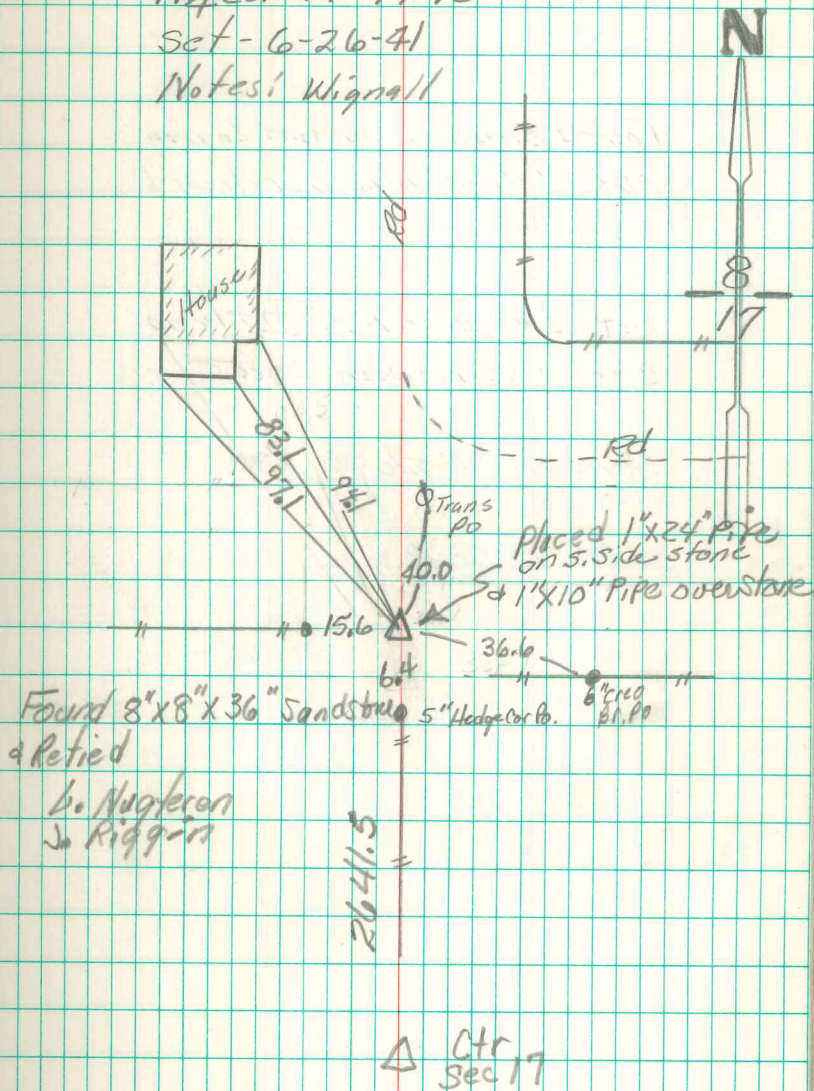 Set - 6-26-41
Notes: Wignall
N
Rd
House
8
17
83.1
97.1
94.1
Rd
Trans
Po
40.0
Placed 1"x24" Pipe
on S. side stone
& 1"x10" Pipe over stone
15.6
36.6
6.4
6" Creo
Br. Po
Found 8"x8"x36" Sandstone
5" Hedge Cor Po.
& Retied
L. Nugteren
J. Riggin
2641.5
Ctr
Sec 17